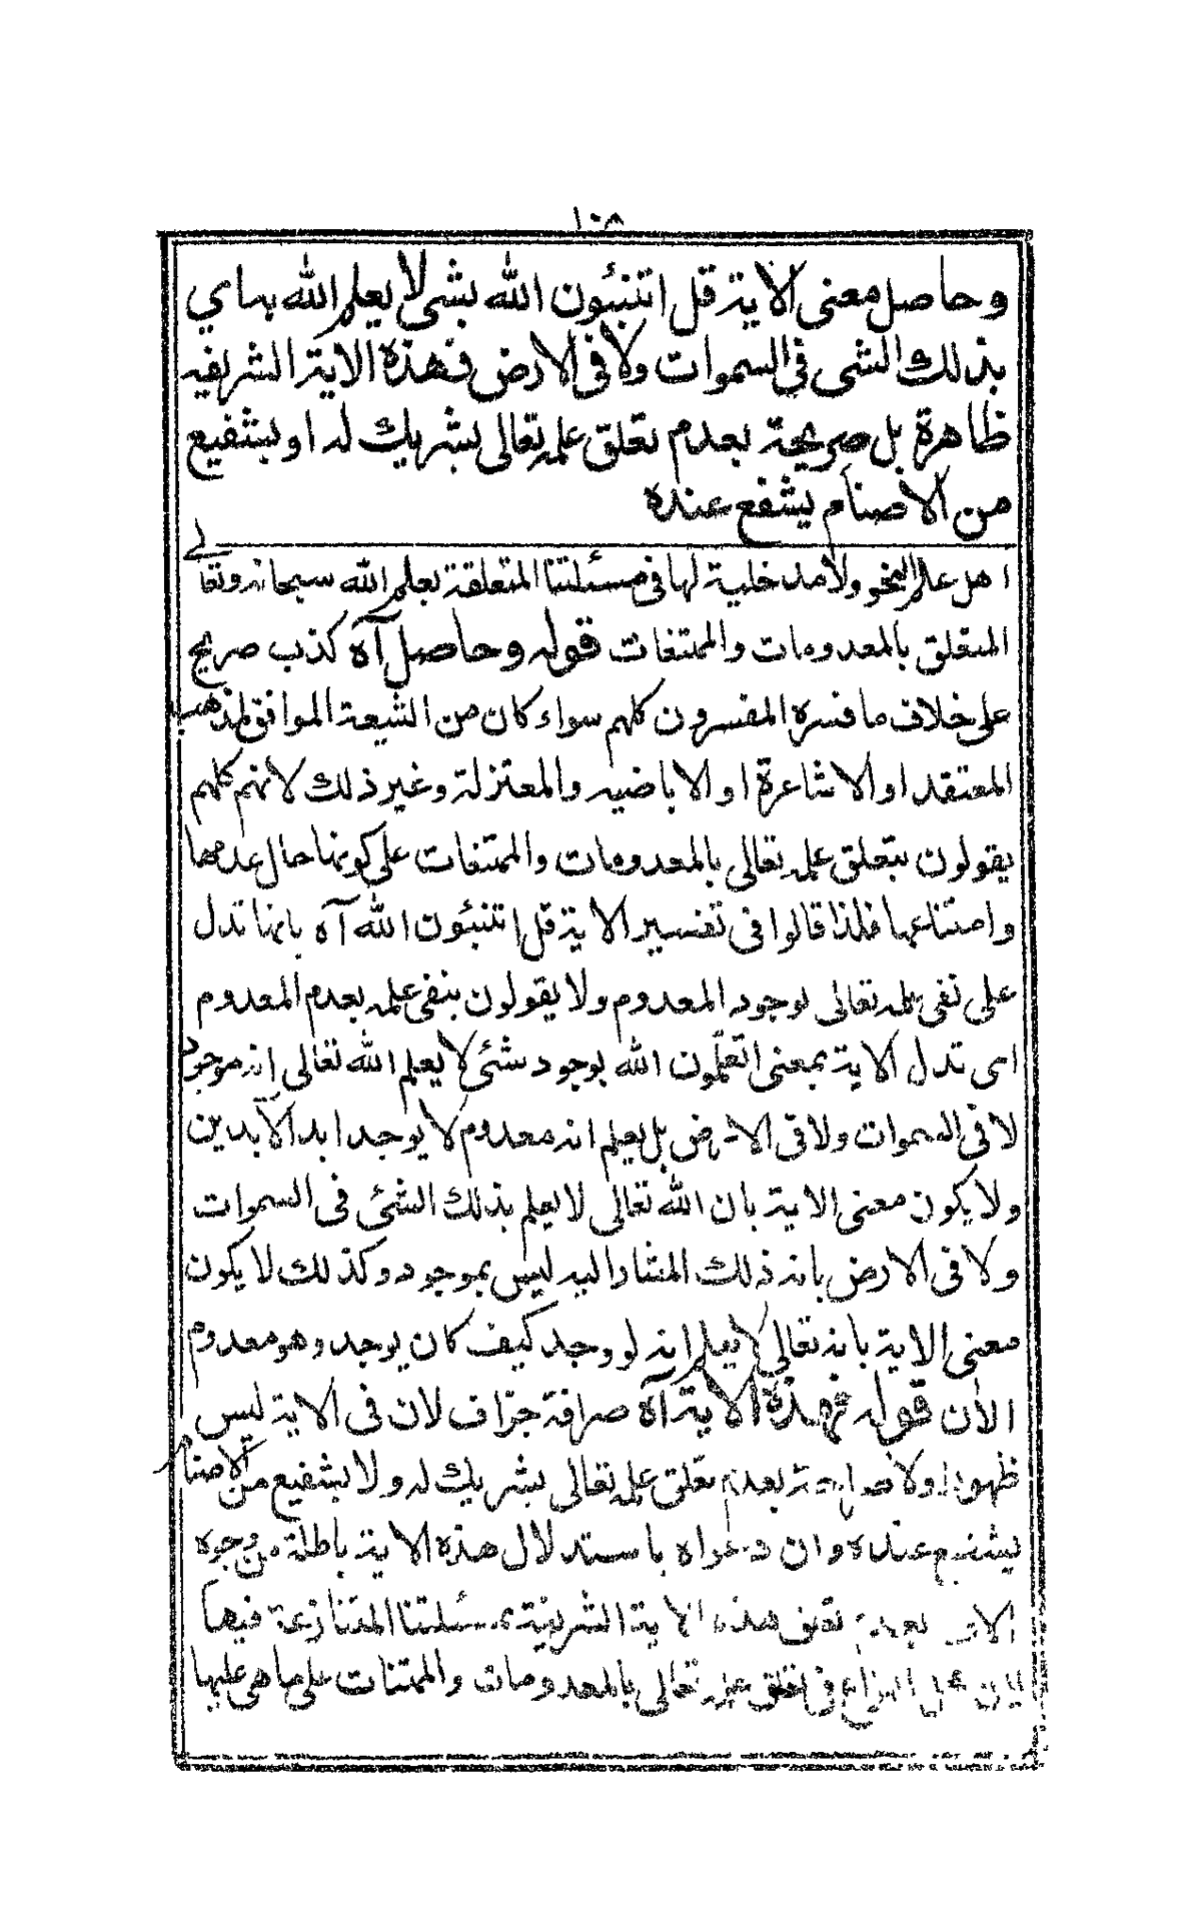 ١٠٨
وحاصل معنى الاية قل اتنبئون الله بشى لا يعلم الله بها اي
بذلك الشى فى السموات ولا فى الارض فهذه الاية الشريفه
ظاهرة بل صريحة بعدم تعلق علمه تعالى بشريك له او بشفيع
من الاصنام يشفع عنده
اهل علم النحو ولا مدخلية لها فى مسئلتنا المتعلقة بعلم الله سبحانه وتعالى
المتعلق بالمعدومات والممتنعات قوله وحاصل آه كذب صريح
على خلاف ما فسره المفسرون كلهم سواء كان من الشيعة الموافق لمذهب
المعتقد او الاشاعرة او الاباضيه والمعتزلة وغير ذلك لانهم كلهم
يقولون بتعلق علمه تعالى بالمعدومات والممتنعات على كونها حال عدمها
وامتناعها فلذا قالوا فى تفسير الاية قل اتنبئون الله آه بانها تدل
على نفى علمه تعالى بوجود المعدوم ولا يقولون بنفى علمه بعدم المعدوم
اى تدل الاية بمعنى اتعلّمون الله بوجود شئى لا يعلم الله تعالى انه موجود
لا فى السموات ولا فى الارض بل يعلم انه معدوم لا يوجد ابد الآبدين
ولا يكون معنى الاية بان الله تعالى لا يعلم بذلك الشئى فى السموات
ولا فى الارض بانه ذلك المشار اليه ليس بموجود وكذلك لا يكون
معنى الاية بانه تعالى لا يعلم انه لو وجد كيف كان يوجد وهو معدوم
الان قوله فهذه الاية آه صرافة جزاف لان فى الاية ليس
ظهورا ولا صراحة بعدم تعلق علمه تعالى بشريك له ولا بشفيع من الاصنام
يشفع عنده وان دعواه باستدلال هذه الاية باطلة من وجوه
الاول بعدم تعلق هذه الاية الشريفة بمسئلتنا المتنازعة فيها
لان محل النزاع فى تعلق علمه تعالى بالمعدومات والممتنات على ما هى عليها